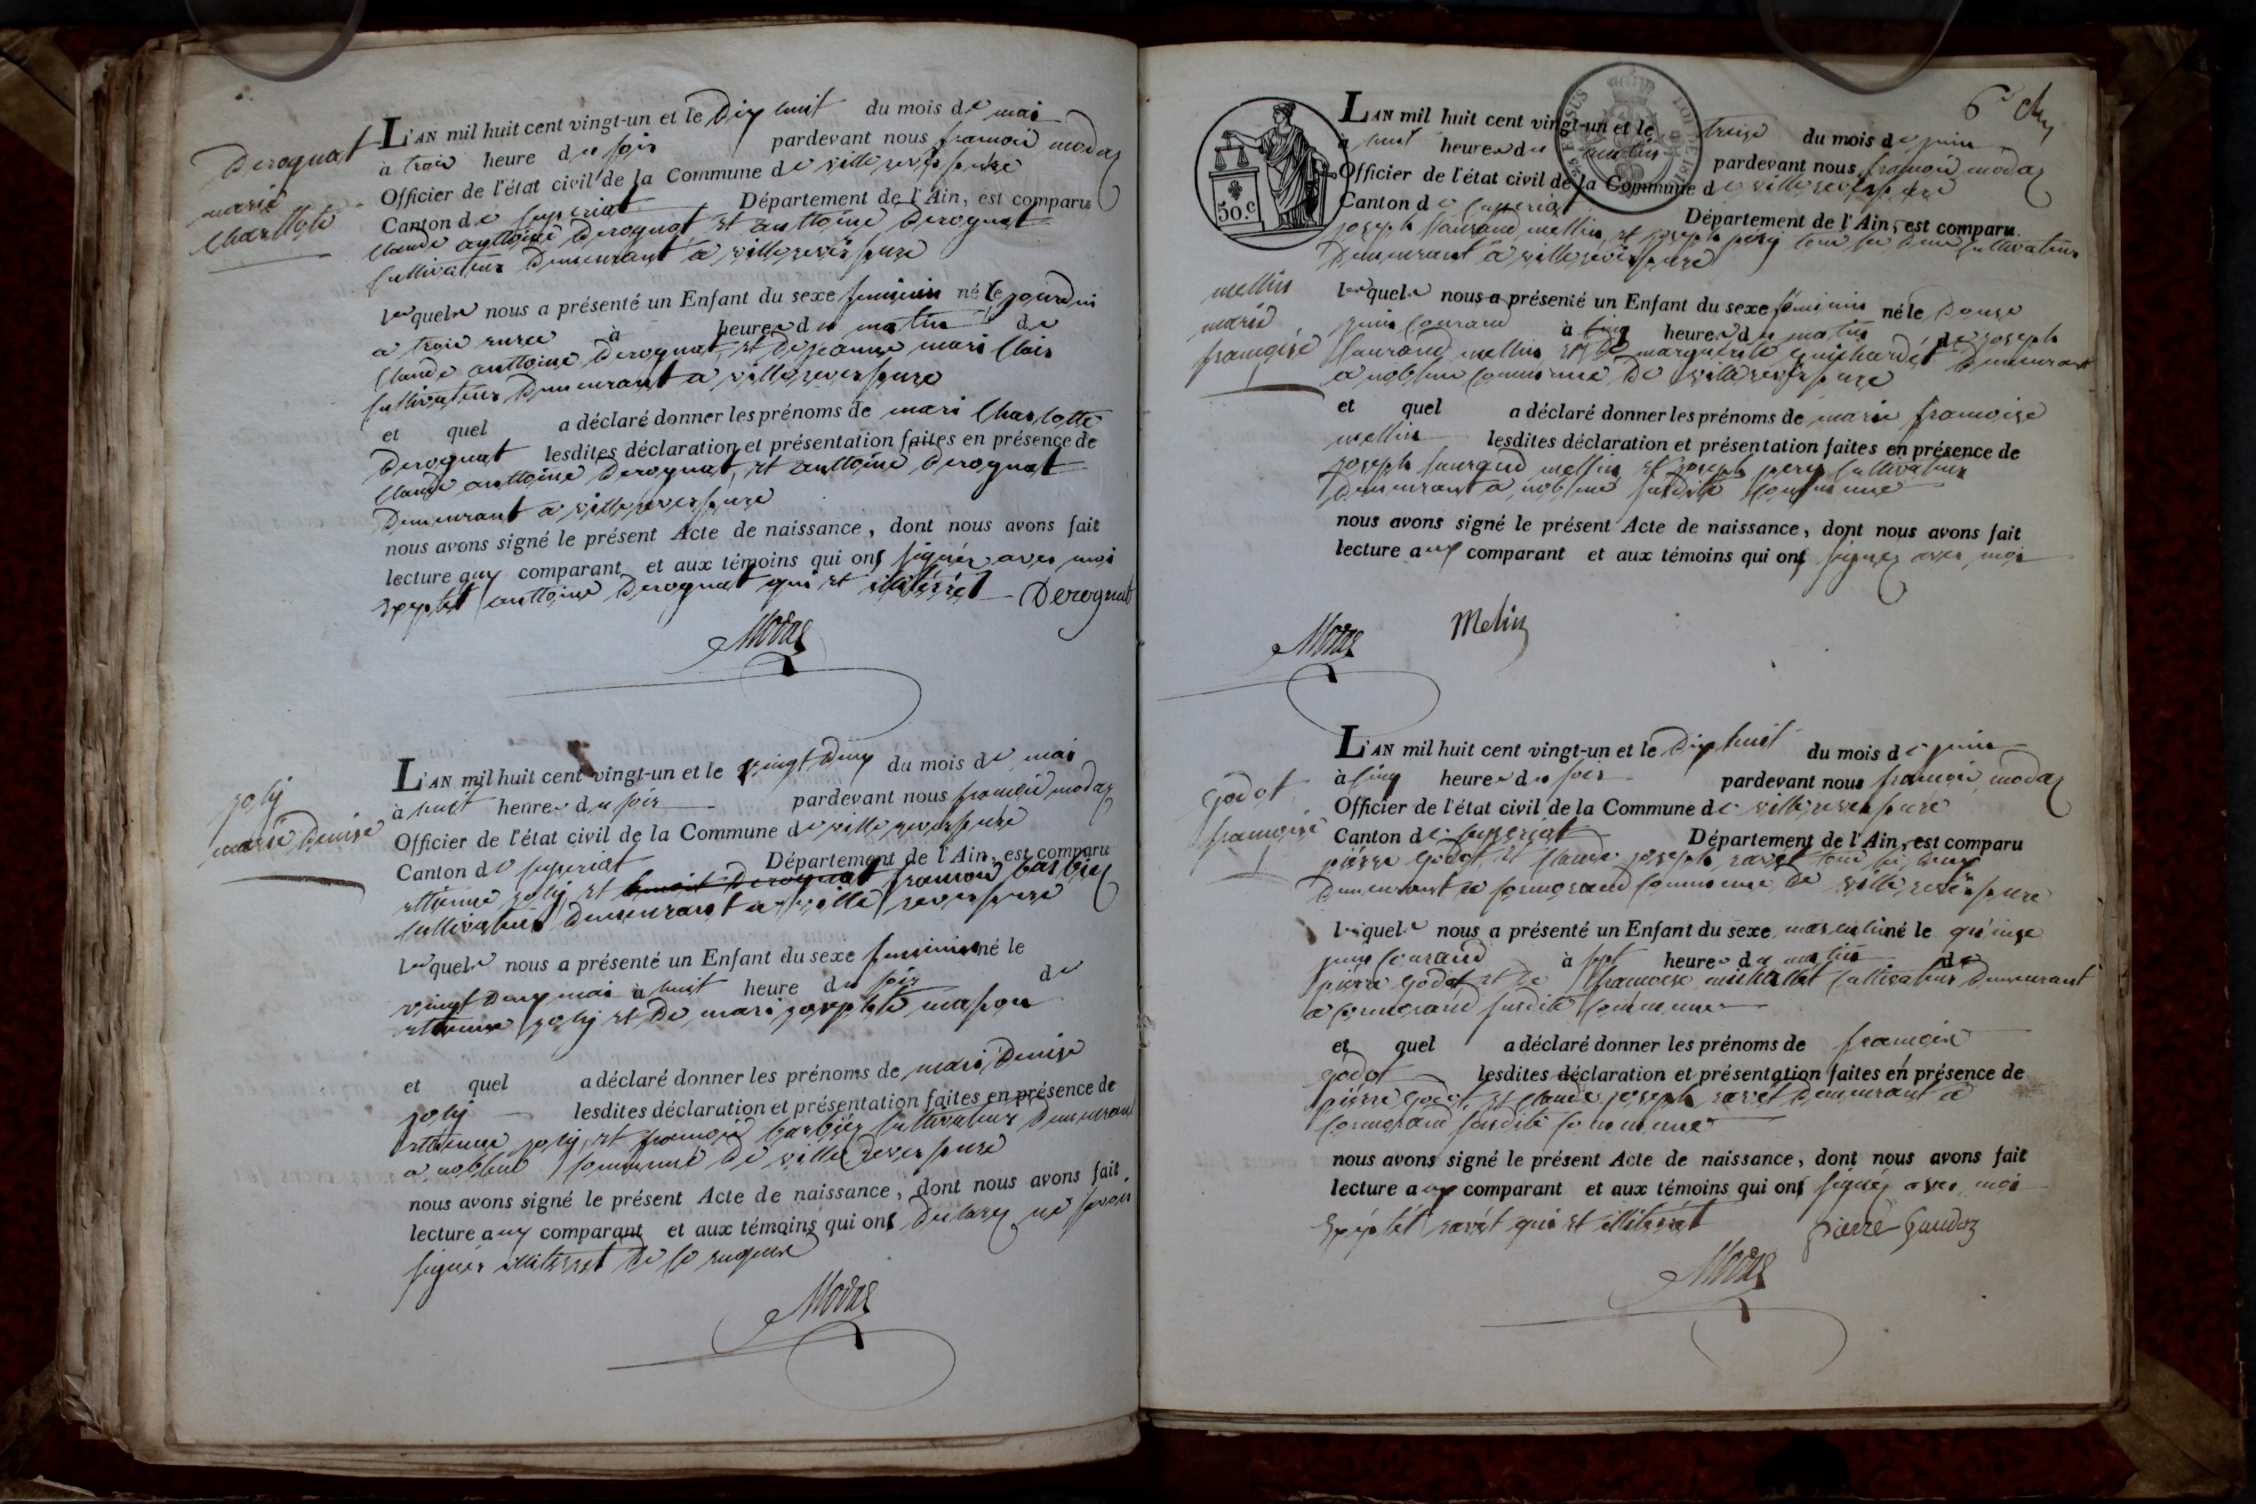 Deroguat
marie
Charllote
L'AN mil huit cent vingt-un et le Dix huit du mois de mai
à trois heure du soir pardevant nous francois modas
Officier de l'état civil de la Commune de villereversure
Canton de Ceyseriat Département de l'Ain, est comparu
Claude anttoine Deroguat et anttoine Deroguat
Cultivateur Demeurant a villereversure
lesquels nous a présenté un Enfant du sexe feminin né le jourdui
a trois à heure du matin de
Claude anttoine Deroguat et de jeanne mari Clair
Cultivateur Demeurant a villereversure
et quel a déclaré donner les prénoms de mari Charlotte
Deroguat lesdites déclaration et présentation faites en présence de
Claude anttoine Deroguat, et anttoine Deroguat
Demeurant a villereversure
nous avons signé le présent Acte de naissance, dont nous avons fait
lecture aux comparant et aux témoins qui ont signéz avec moi
exeptét anttoine Deroguat qui et illitérét Deroguat
Modas
joly
marie Denise
L'AN mil huit cent vingt-un et le vingt Deux du mois de mai
à huit heures du soir pardevant nous francois modas
Officier de l'état civil de la Commune de villereversure
Canton de Ceyseriat Département de l'Ain, est comparu
ettienne joly et benoit Deroguat francois barbiez
Cultivateur Demeurant a ville reversure
lesquels nous a présenté un Enfant du sexe feminin né le
vingt Deux mai à huit heure du soir de
ettienne joly et De mari josephte masson
et quel a déclaré donner les prénoms de mari Denise
joly lesdites déclaration et présentation faites en présence de
ettienne joly et francois barbiez Cultivateur Demeurant
a noblens Commune De ville reversure
nous avons signé le présent Acte de naissance, dont nous avons fait
lecture aux comparant et aux témoins qui ont Declarez ne savoir
signér illiterret De ce requis
Modas
6e
50.c
L'AN mil huit cent vingt-un et le treise du mois de juin
à huit heures du matin pardevant nous francois modas
Officier de l'état civil de la Commune de villereversure
Canton de Ceyseriat Département de l'Ain, est comparu
joseph laurand mellin et joseph pery tous les deux Cultivateur
Demeurant a villereversure
mellin
marie
françoise
lesquels nous a présenté un Enfant du sexe feminin né le Douse
juin Courand à cinq heures du matin de joseph
laurand mellin et de marguerite guichardet Demeurant
a noblens Commune De villereversure
et quel a déclaré donner les prénoms de marie francoise
mellin lesdites déclaration et présentation faites en présence de
joseph laurand mellin et joseph pery Cultivateur
Demeurant a noblens susdite Commune
nous avons signé le présent Acte de naissance, dont nous avons fait
lecture aux comparant et aux témoins qui ont signez avec moi
Modas Melin
godot
françoise
L'AN mil huit cent vingt-un et le Dix huit du mois de juin
à cinq heures du soir pardevant nous francois modas
Officier de l'état civil de la Commune de villereversure
Canton de Ceyseriat Département de l'Ain, est comparu
pierre godot et Claude joseph ravet tous les deux
Demeurant a Cormorand Commune De ville reversure
lesquels nous a présenté un Enfant du sexe masculin né le quinse
juin Courand à sept heures du matin de
pierre godot et de francoise michallet Cultivateur Demeurant
a Cormorand susdite Commune
et quel a déclaré donner les prénoms de francoise
godot lesdites déclaration et présentation faites en présence de
pierre godot et Claude joseph ravet Demeurant a
Cormorand susdite Commune
nous avons signé le présent Acte de naissance, dont nous avons fait
lecture aux comparant et aux témoins qui ont signez avec moi
exeptét ravét qui et illitérét pierre Gaudoz
Modas